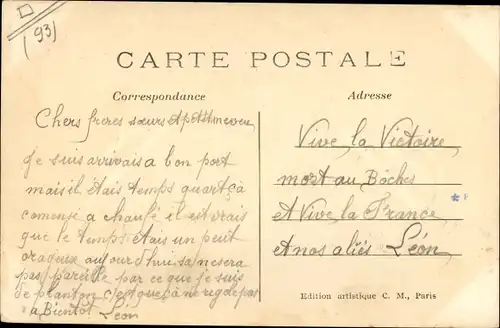 (93)
CARTE POSTALE
Correspondance
Adresse
Chers freres sœurs et petit neveu
Je suis arrivais a bon port
mais il étais temps quart çà
comense a chaufé il est vrais
que le temps étais un peut
orageux aujourd'hui sa nesera
pas pareille par ce que je suis
de planton c'est que çà ne rigole pas
a Bientôt Léon
Vive la Victoire
mort au Boches
A Vive la France
A nos aliés Léon
Edition artistique C. M., Paris